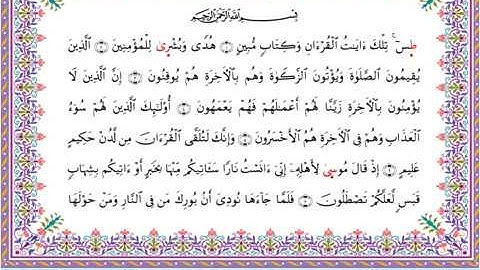 بِسْمِ اللَّهِ الرَّحْمَٰنِ الرَّحِيمِ
طسٓ ۚ تِلْكَ ءَايَٰتُ ٱلْقُرْءَانِ وَكِتَابٍ مُّبِينٍ ۝ هُدًى وَبُشْرَىٰ لِلْمُؤْمِنِينَ ۝ ٱلَّذِينَ
يُقِيمُونَ ٱلصَّلَوٰةَ وَيُؤْتُونَ ٱلزَّكَوٰةَ وَهُم بِٱلْءَاخِرَةِ هُمْ يُوقِنُونَ ۝ إِنَّ ٱلَّذِينَ لَا
يُؤْمِنُونَ بِٱلْءَاخِرَةِ زَيَّنَّا لَهُمْ أَعْمَٰلَهُمْ فَهُمْ يَعْمَهُونَ ۝ أُو۟لَٰٓئِكَ ٱلَّذِينَ لَهُمْ سُوٓءُ
ٱلْعَذَابِ وَهُمْ فِى ٱلْءَاخِرَةِ هُمُ ٱلْأَخْسَرُونَ ۝ وَإِنَّكَ لَتُلَقَّى ٱلْقُرْءَانَ مِن لَّدُنْ حَكِيمٍ
عَلِيمٍ ۝ إِذْ قَالَ مُوسَىٰ لِأَهْلِهِۦٓ إِنِّىٓ ءَانَسْتُ نَارًا سَـَٔاتِيكُم مِّنْهَا بِخَبَرٍ أَوْ ءَاتِيكُم بِشِهَابٍ
قَبَسٍ لَّعَلَّكُمْ تَصْطَلُونَ ۝ فَلَمَّا جَآءَهَا نُودِىَ أَنۢ بُورِكَ مَن فِى ٱلنَّارِ وَمَنْ حَوْلَهَا